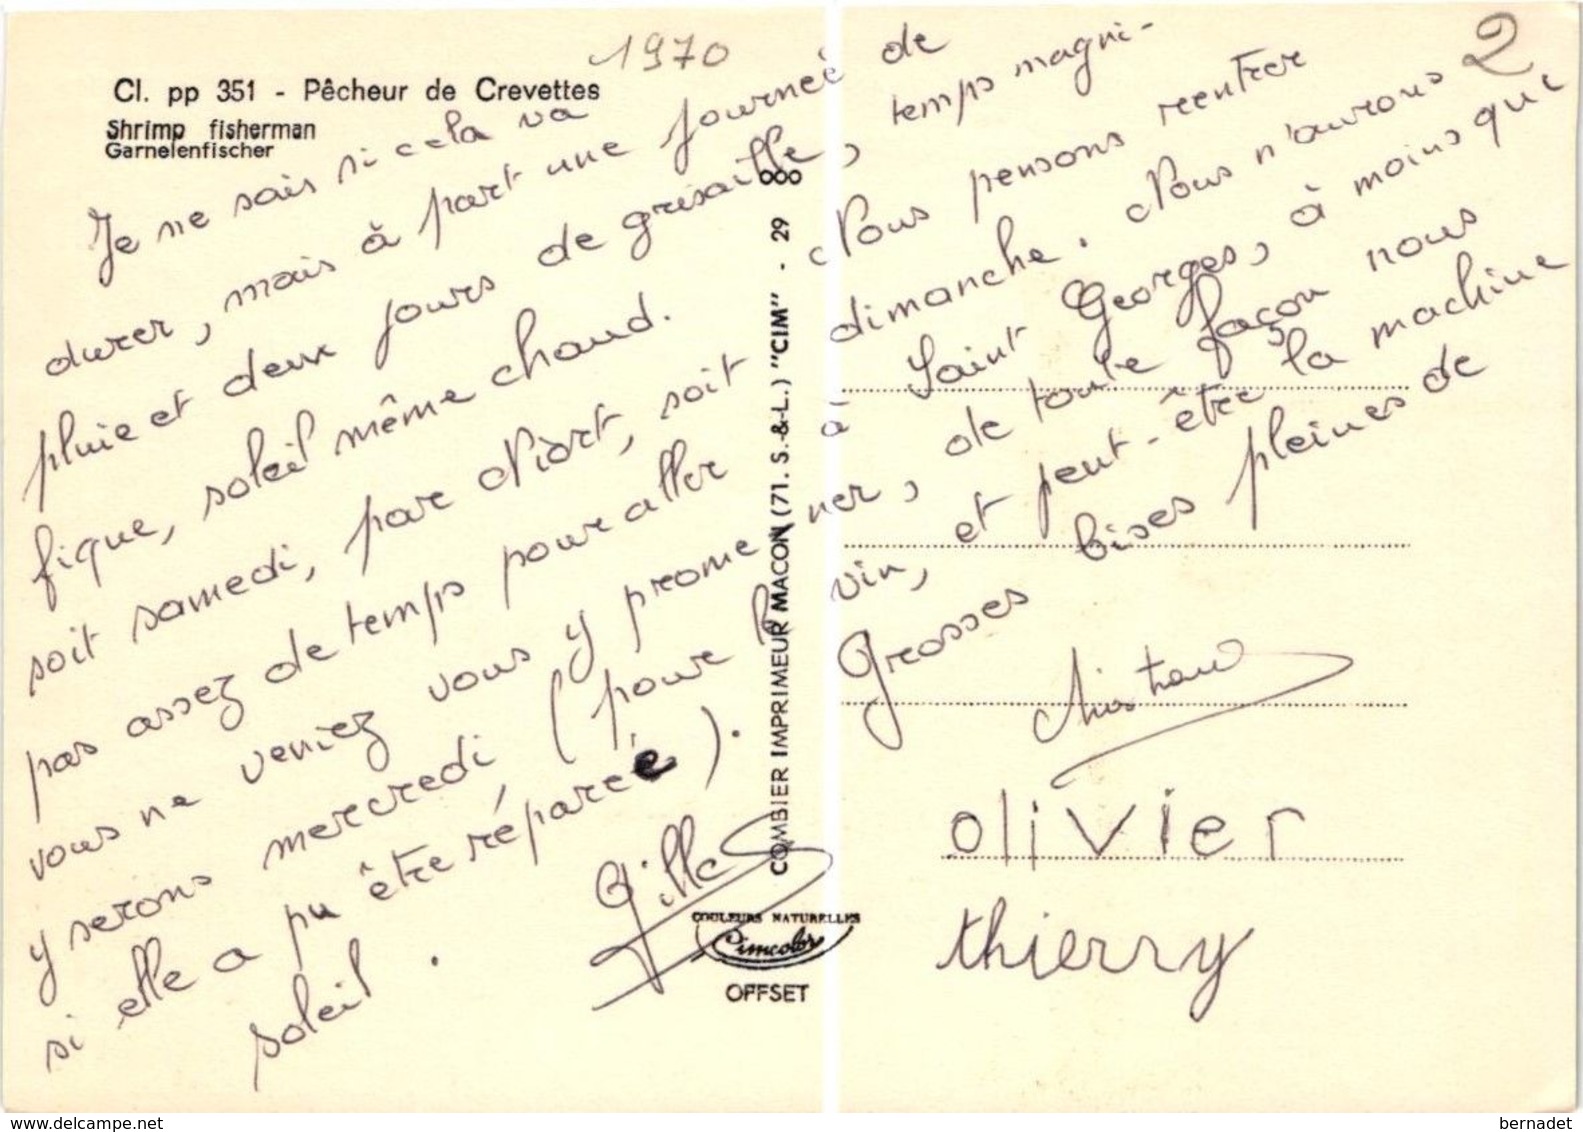 1970
2
Cl. pp 351 - Pêcheur de Crevettes
Shrimp fisherman
Garnelenfischer
Je ne sais si cela va
durer, mais à part une journée de
pluie et deux jours de grisaille, temps magni-
fique, soleil même chaud. Nous pensons rentrer
soit samedi, par Niort, soit dimanche. Nous n'aurons
pas assez de temps pour aller à Saint Georges, à moins que
vous ne veniez vous y promener, de toute façon nous
y serons mercredi (pour le vin, et peut-être la machine
si elle a pu être réparée). Grosses bises pleines de
soleil.
Gilles
Olivier
thierry
COMBIER IMPRIMEUR MACON (71. S.-&-L.) "CIM" - 29
COULEURS NATURELLES
Cimcolor
OFFSET
www.delcampe.net
bernadet